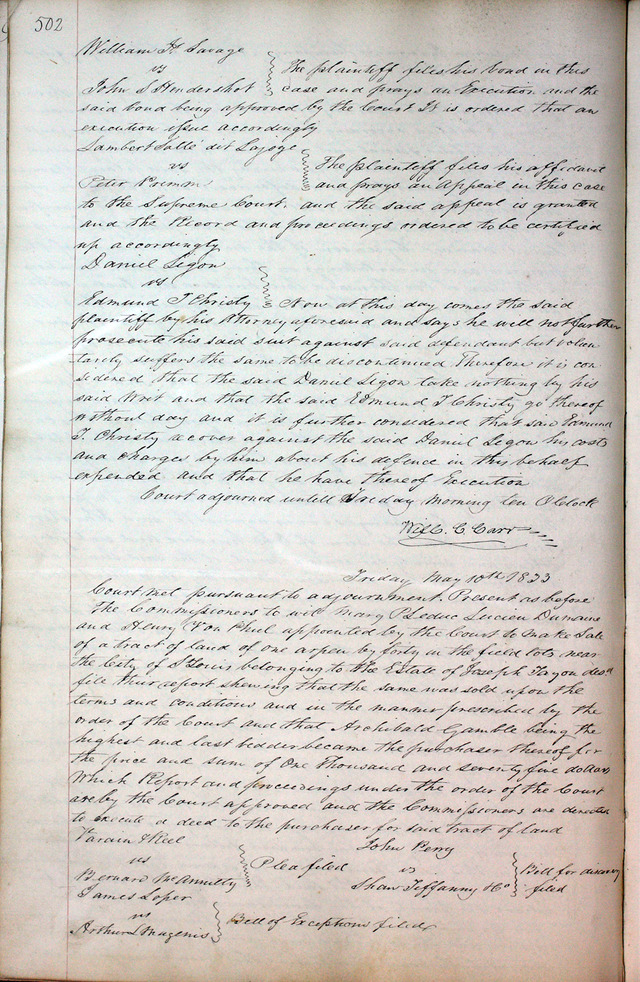 502
William H Savage
vs
John S Hendershot
The plaintiff files his bond in this
case and prays an Execution and the
said bond being approved by the Court It is ordered that an
execution issue accordingly
Lambert Sallé dit Lajoye
vs
Peter Primm
The plaintiff files his affidavit
and prays an Appeal in this case
to the Supreme Court. and the said appeal is granted
and the Record and proceedings ordered to be certified
up accordingly
Daniel Ligon
vs
Edmund T Christy
Now at this day comes the said
plaintiff by his Attorney aforesaid and says he will not further
prosecute his said suit against said defendant but volun
tarily suffers the same to be discontinued Therefore it is con
sidered that the said Daniel Ligon take nothing by his
said Writ and that the said Edmund T Christy go thereof
without day and it is further considered that said Edmund
T. Christy recover against the said Daniel Ligon his costs
and charges by him about his defence in this behalf
expended and that he have thereof Execution
Court adjourned untill Friday morning ten OClock
Will. C Carr
Friday May 10th 1833
Court met pursuant to adjournment. Present as before
The Commissioners to wit Mary P Leduc Lucien Dumaine
and Henry Von Phul appointed by the Court to make Sale
of a tract of land of one arpen by forty in the field lots near
the City of St Louis belonging to the Estate of Joseph Tayon desd
file their report shewing that the same was sold upon the
terms and conditions and in the manner prescribed by the
order of the Court and that Archibald Gamble being the
highest and last bidder became the purchaser thereof for
the price and sum of One thousand and seventy five dollars
Which Report and proceedings under the order of the Court
are by the Court approved and the Commissioners are directed
to execute a deed to the purchaser for said tract of land
Tarain & Keel
vs
Bernard McAnnulty
Plea filed
John Perry
vs
Shaw Tiffanny & Co
Bill for discovery
filed
James Loper
vs
Arthur L Magenis
Bill of Exceptions filed